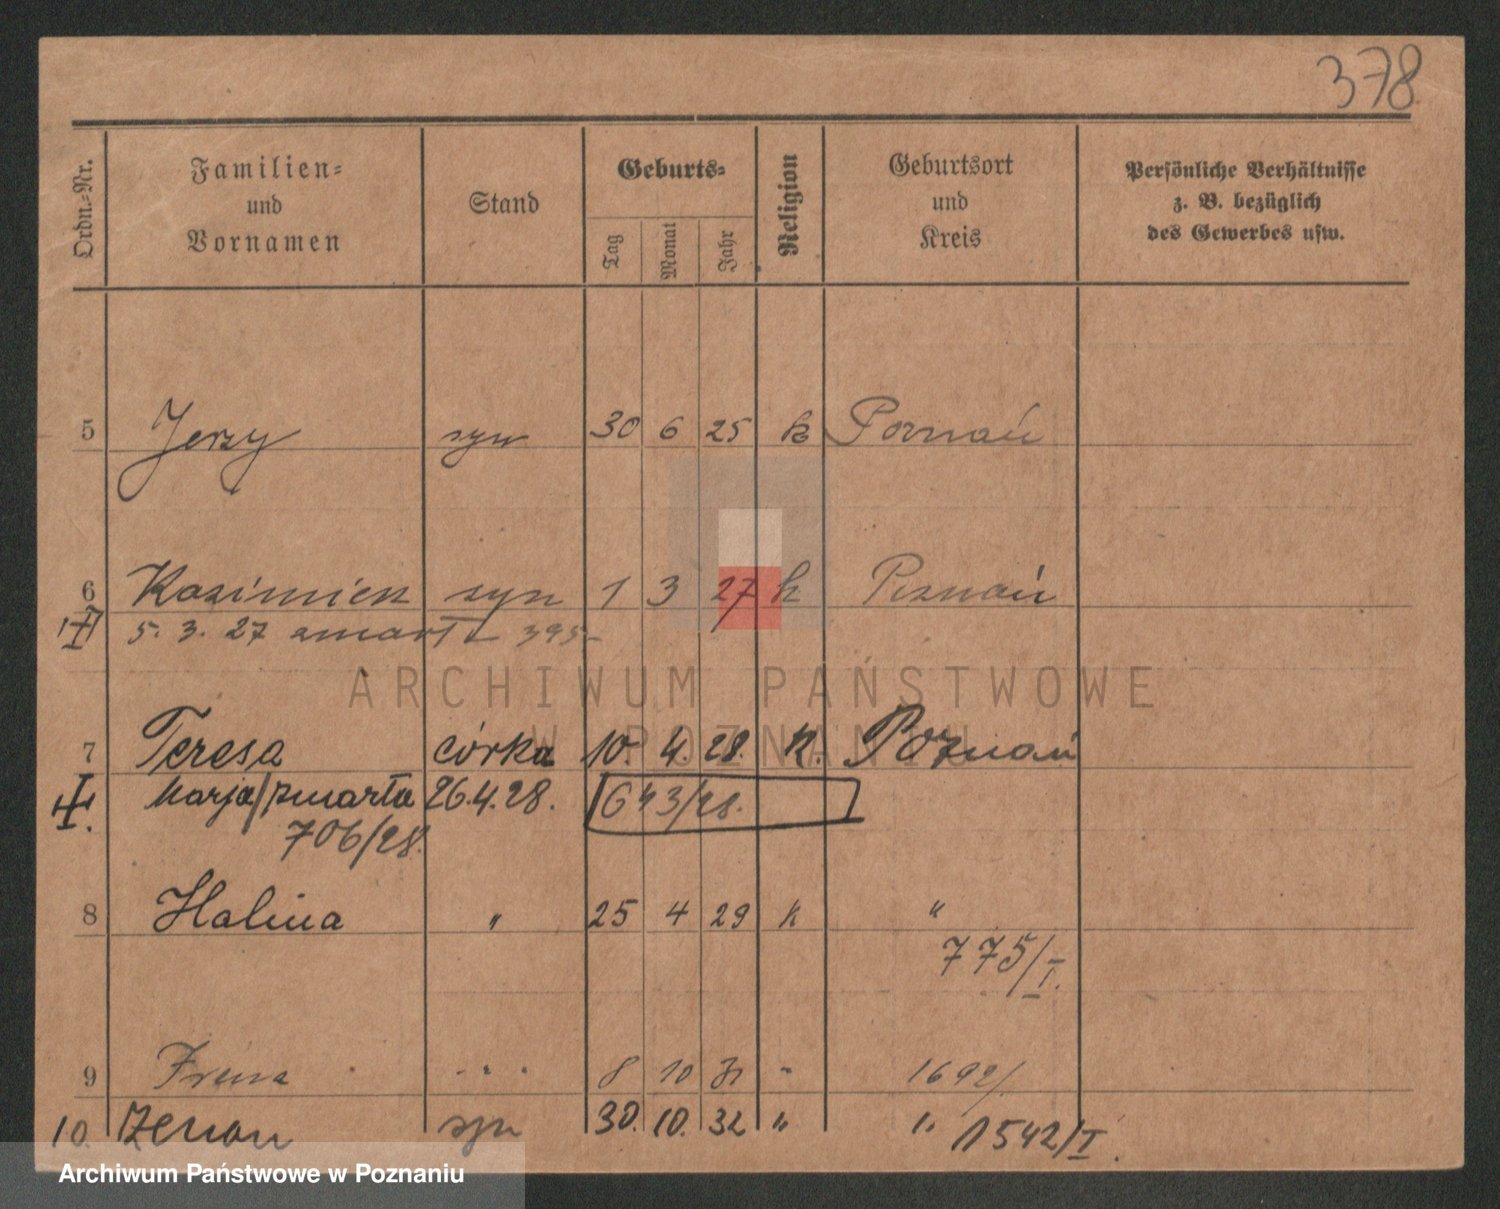 378
Ordn.-Nr.
Familien-
und
Vornamen
Stand
Geburts-
Tag
Monat
Jahr
Religion
Geburtsort
und
Kreis
Persönliche Verhältnisse
z. B. bezüglich
des Gewerbes usw.
5 Jerzy syn 30 6 25 k Poznań
6 Kazimierz syn 1 3 27 k Poznań
5. 3. 27 zmarł 395
ARCHIWUM PAŃSTWOWE
W POZNANIU
7 Teresa córka 10. 4. 28. k. Poznań
Marja/zmarła 26.4.28. 643/28.
706/28.
8 Halina " 25 4 29 k "
775/I.
9 Irena " 8 10 31 " 1692/
10. Zenon syn 30. 10. 32 " " 1542/I.
Archiwum Państwowe w Poznaniu